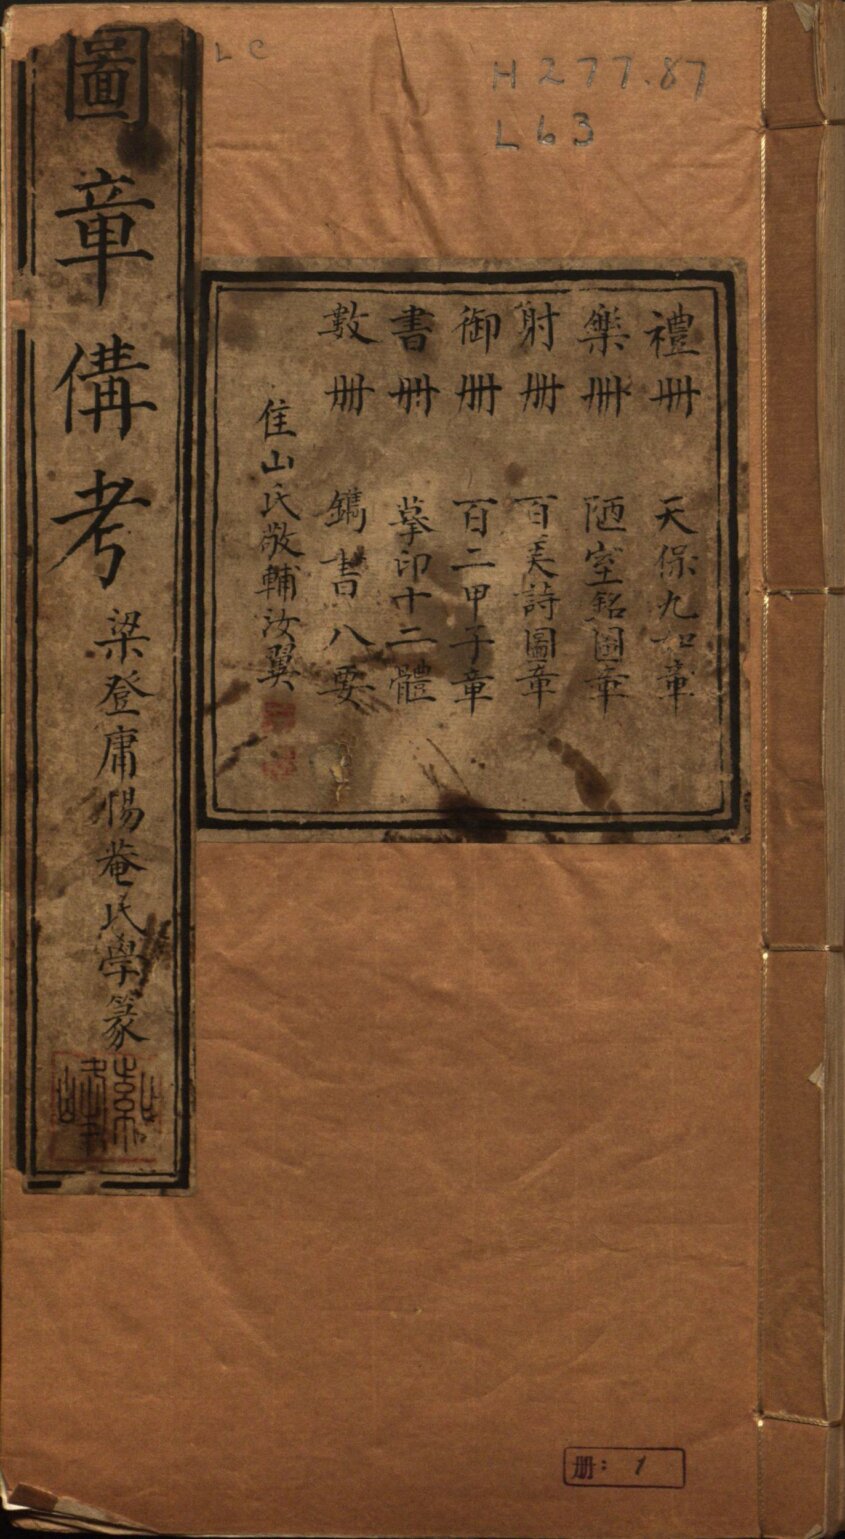 LC
H277.87
L63
圖章備考
梁登庸惕菴氏學篆
禮冊 天保九如章
樂冊 陋室銘圖章
射冊 百美詩圖章
御冊 百二甲子章
書冊 摹印十二體
數冊 鐫書八要
隹山氏敬輔汝翼
册: 1